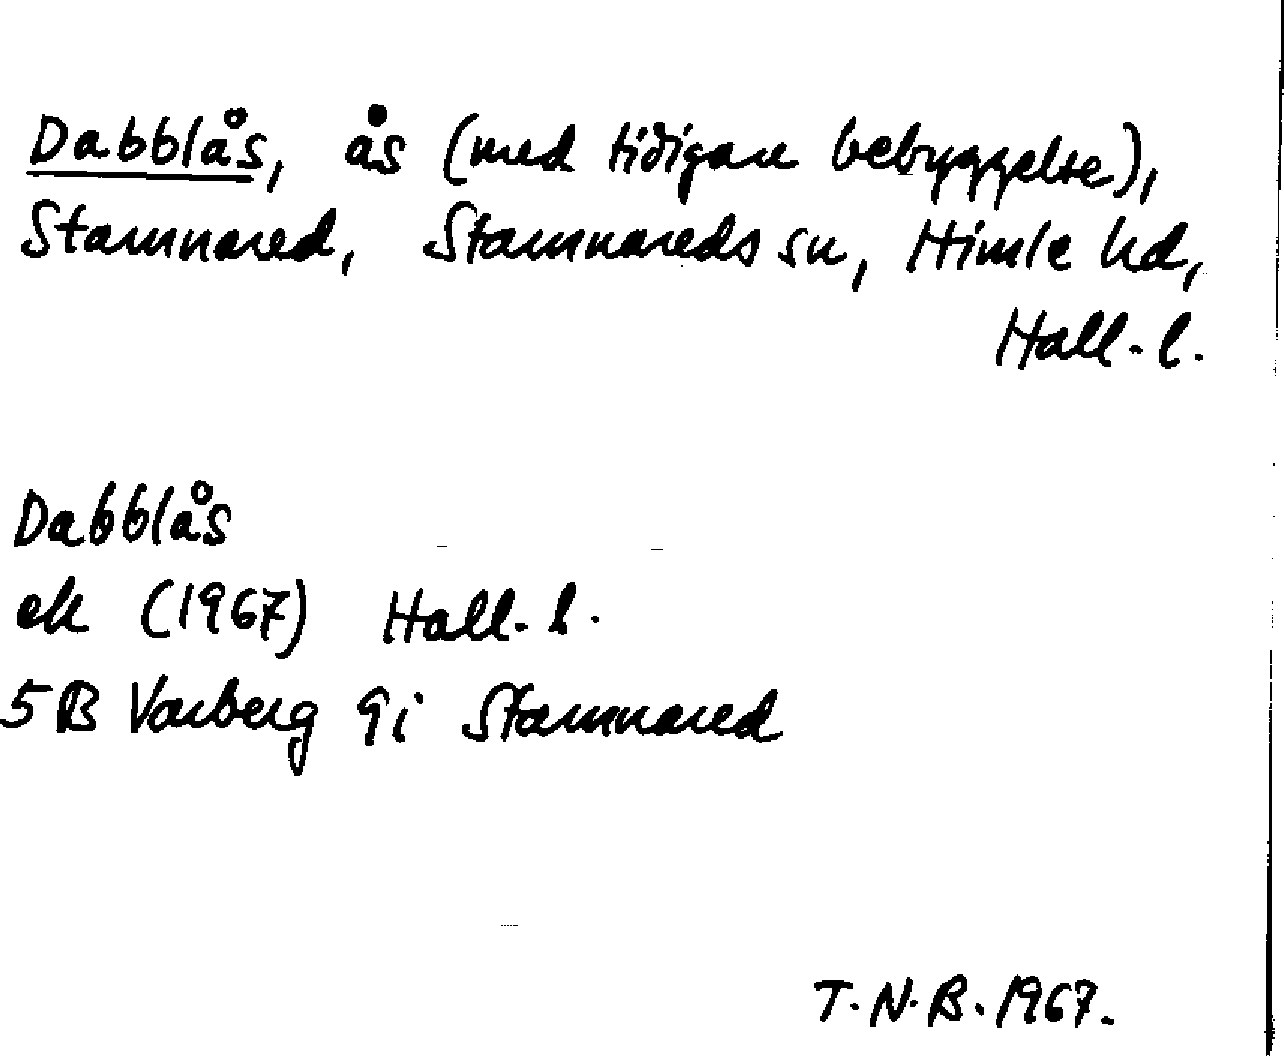 Dabblås, ås (med tidigare bebyggelse),
Stamnared, Stamnareds sn, Himle hd,
Hall. l.
Dabblås
ek (1967) Hall. l.
5B Varberg 9i Stamnared
T.N.B. 1967.